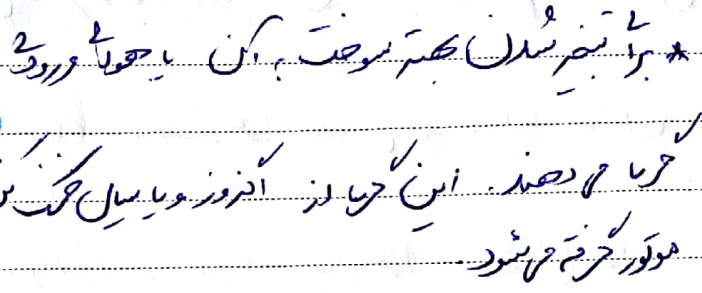 * برای تبخیر شدن بهتر سوخت، به آن یا هوای ورودی
گرما می دهند. این گرما از اگزوز و یا سیال خنک
موتور گرفته می شود.